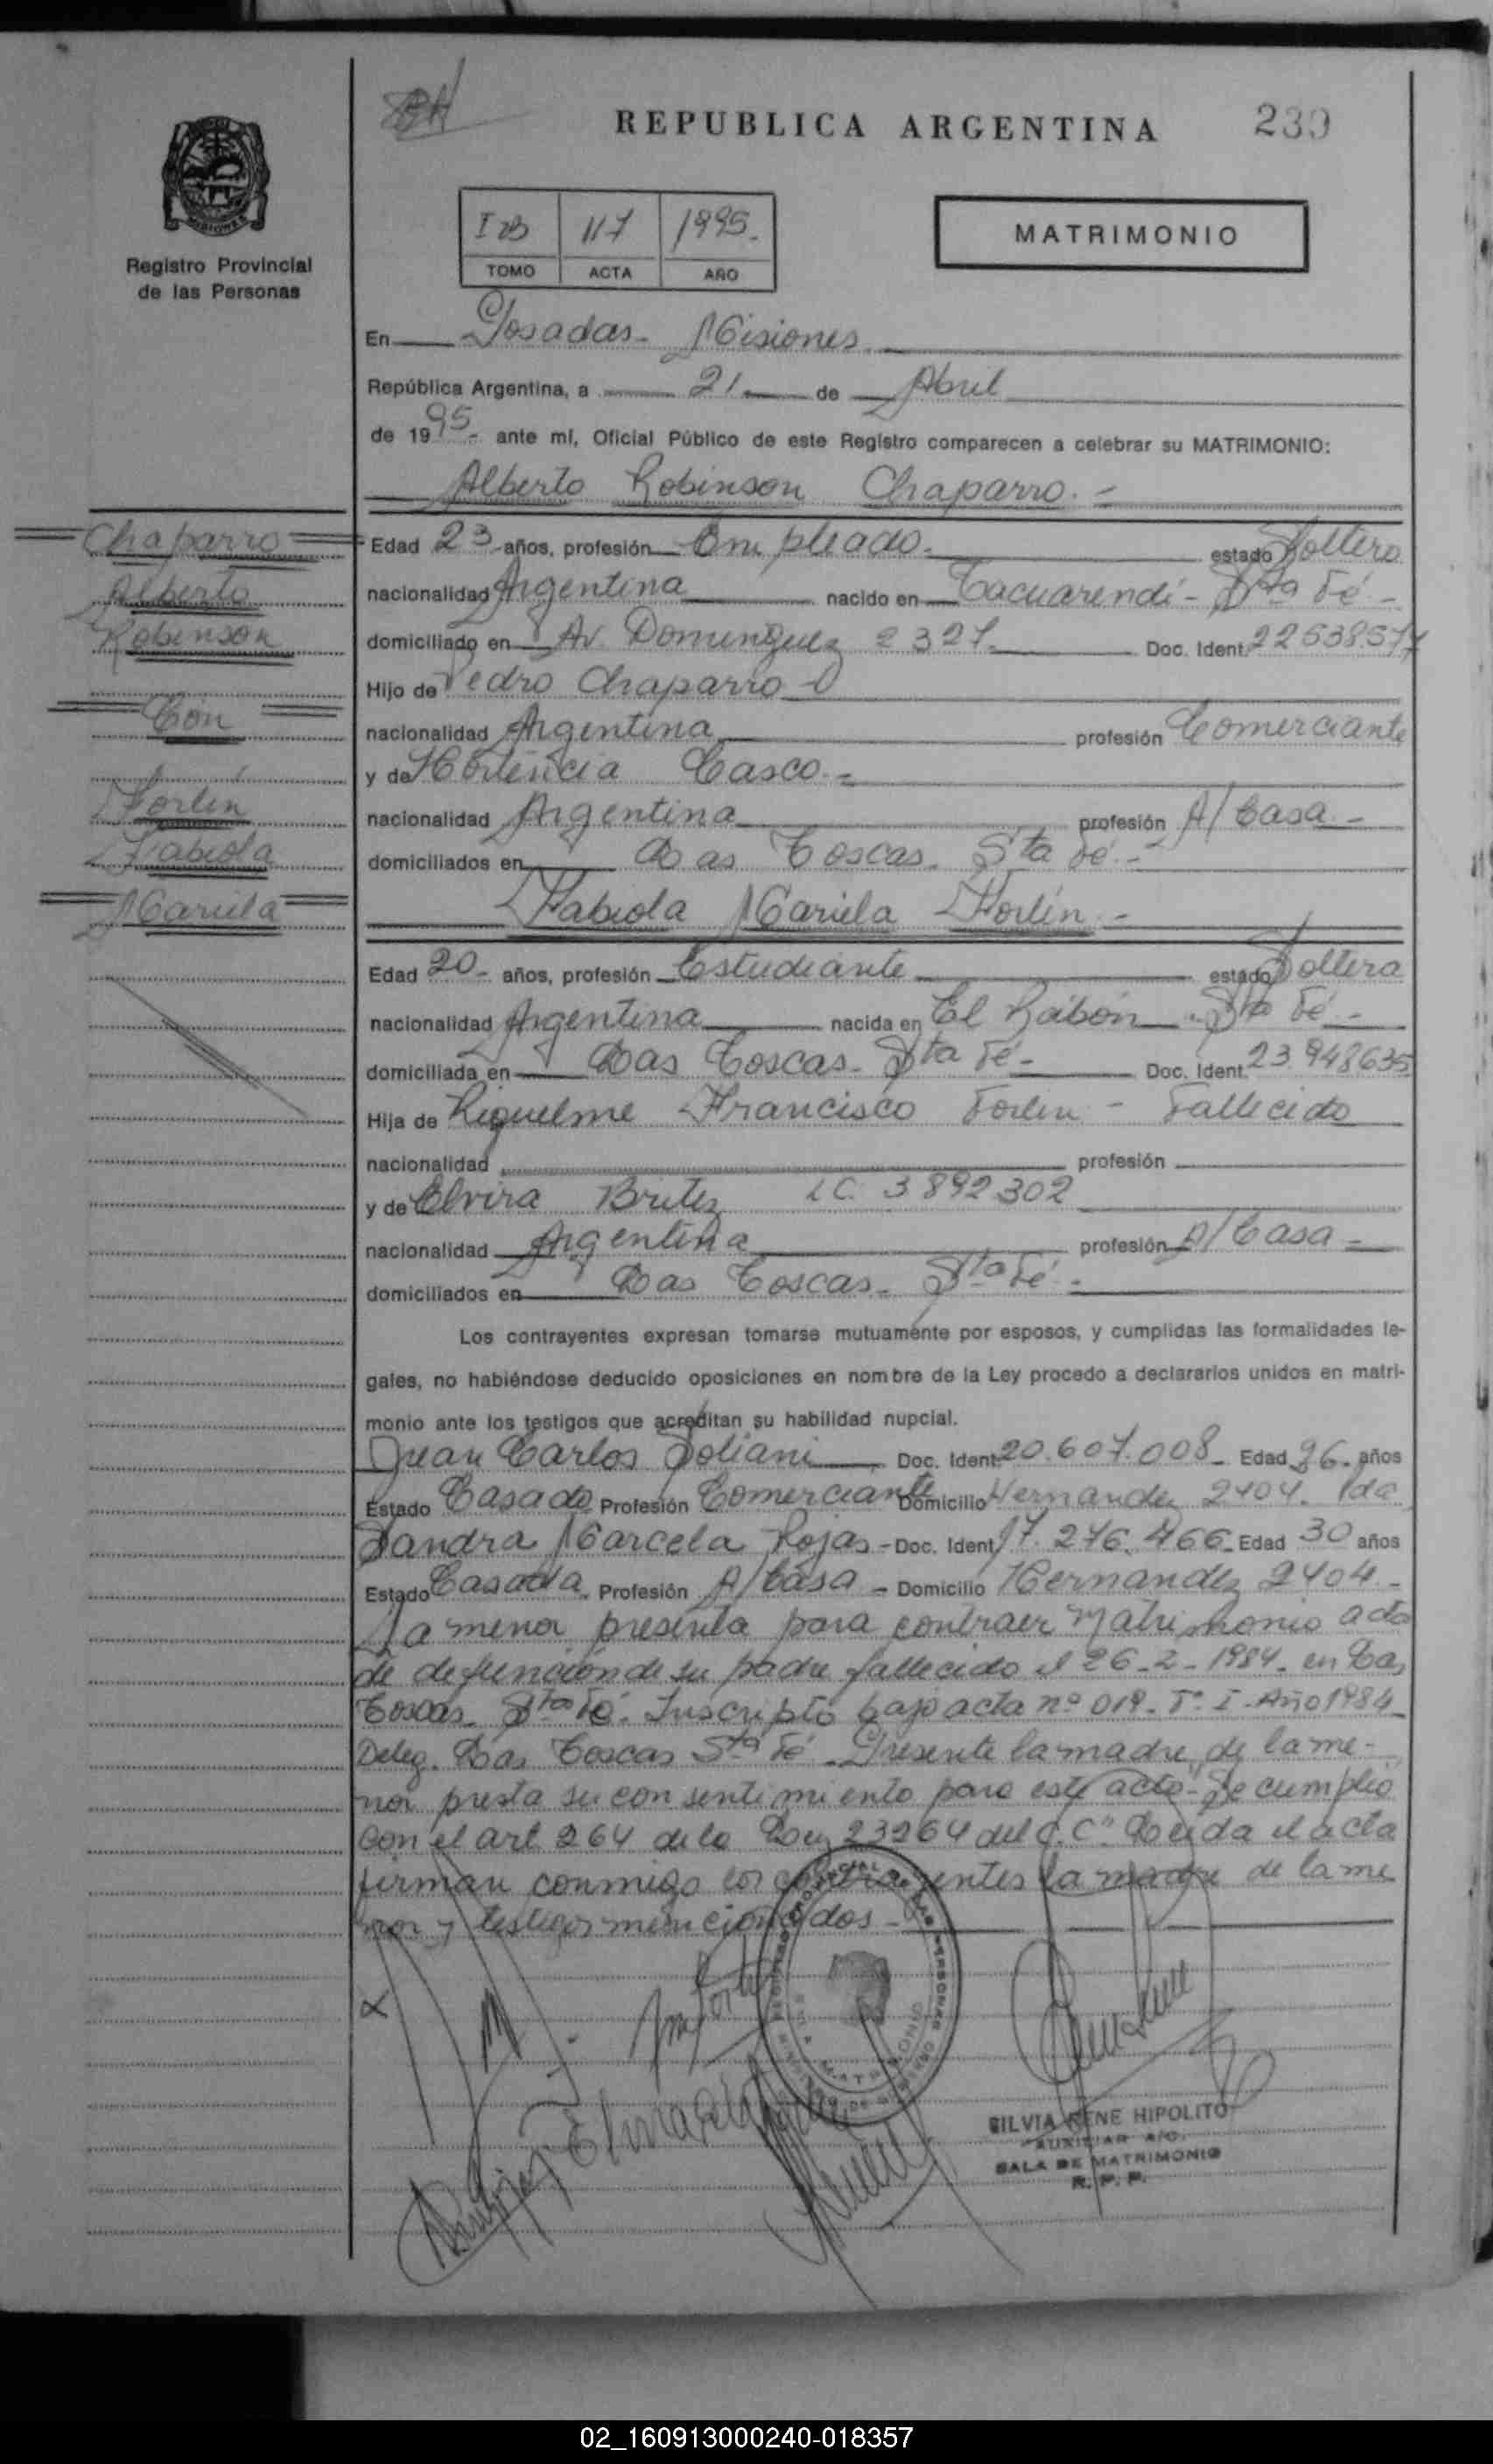 REPUBLICA ARGENTINA 239
MISIONES
Registro Provincial
de las Personas
I B 117 1995.
TOMO ACTA AÑO
MATRIMONIO
En Posadas - Misiones
República Argentina, a 21 de Abril
de 1995- ante mí, Oficial Público de este Registro comparecen a celebrar su MATRIMONIO:
Alberto Robinson Chaparro. -
Chaparro
Alberto
Robinson
Con
Forlin
Fabiola
Mariela
Edad 23 años, profesión Empleado - estado Soltero
nacionalidad Argentina nacido en Tacuarendí - Sta Fé -
domiciliado en Av. Dominguez 2327 Doc. Ident. 22538577
Hijo de Pedro Chaparro
nacionalidad Argentina profesión Comerciante
y de Hortencia Casco -
nacionalidad Argentina profesión A/ Casa -
domiciliados en Las Toscas. Sta Fé -
Fabiola Mariela Forlín -
Edad 20 - años, profesión Estudiante estado Soltera
nacionalidad Argentina nacida en El Rabón - Sta Fé -
domiciliada en Las Toscas - Sta Fé - Doc. Ident. 23.948635
Hija de Riquelme Francisco Forlin - Fallecido
nacionalidad profesión
y de Elvira Britez LC. 3892302
nacionalidad Argentina profesión A/ Casa -
domiciliados en Las Toscas - Sta Fé -
Los contrayentes expresan tomarse mutuamente por esposos, y cumplidas las formalidades le-
gales, no habiéndose deducido oposiciones en nombre de la Ley procedo a declararlos unidos en matri-
monio ante los testigos que acreditan su habilidad nupcial.
Juan Carlos Soliani Doc. Ident. 20.607.008 - Edad 26 - años
Estado Casado Profesión Comerciante Domicilio Hernandez 2404. Pda
Sandra Marcela Rojas - Doc. Ident. 17.276.466 - Edad 30 años
Estado Casada Profesión A/ Casa - Domicilio Hernandez 2404 -
La menor presenta para contraer Matrimonio acta
de defunción de su padre fallecido el 26-2-1984 - en Las
Toscas - Sta Fé. Inscripto bajo acta nº 019 - Tº I - Año 1984
Deleg. Las Toscas Sta Fé - Presente la madre de la me-
nor presta su consentimiento para este acto - Se cumplio
con el art 264 de la Ley 23264 del C.C. Leida el acta
firman conmigo los contrayentes la madre de la me
nor y testigos mencionados -
SILVIA RENE HIPOLITO
AUXILIAR A/C.
SALA DE MATRIMONIO
R. P. P.
02_160913000240-018357